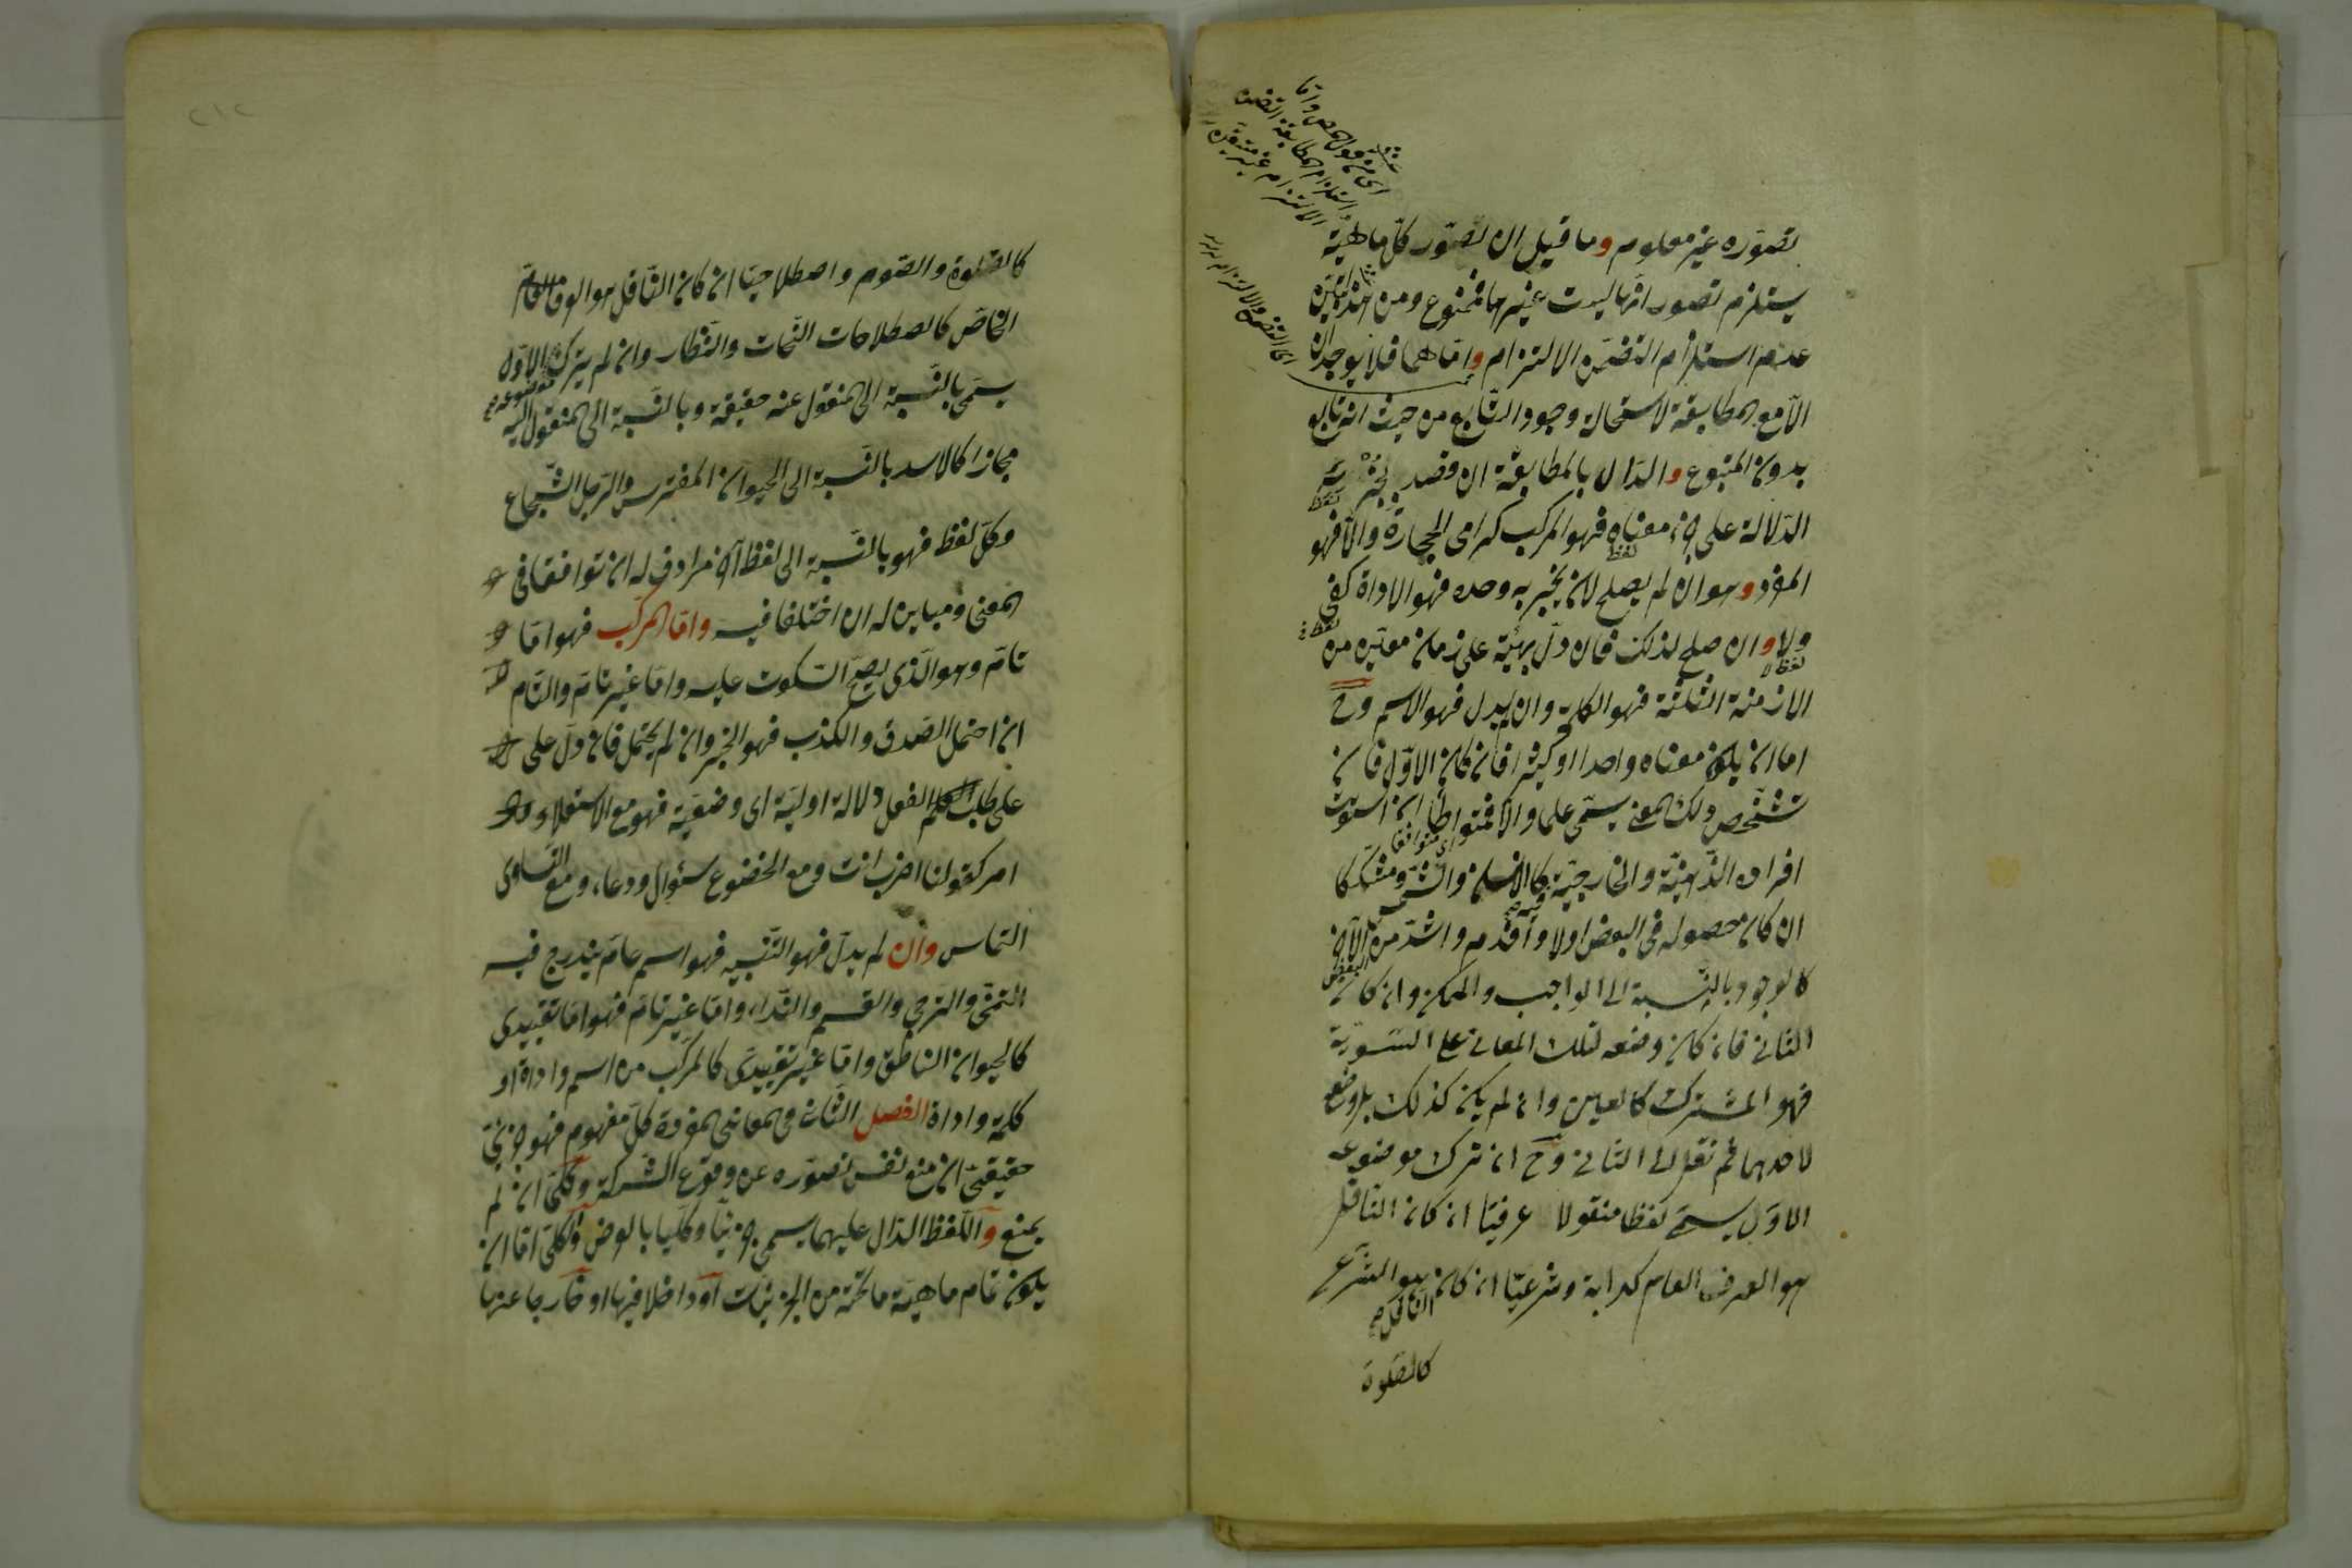 تصوّره غير معلوم وما قيل ان تصوّر كلّ ماهيّة
يستلزم تصور انها ليست غيرها فممنوع ومن هذا تبيّن
عدم استلزام التضمّن الالتزام وامّا هما فلا يوجدان
الّا مع المطابقة لاستحالة وجود التّابع من حيث انه تابع
بدون المتبوع والدّال بالمطابقة ان قصد بجزئه
الدّلالة على جزء معناه فهو المركب كرامى الحجارة والّا فهو
المفرد وهو ان لم يصلح لان يخبر به وحده فهو الاداة كفى
ولا وان صلح لذلك فان دلّ بهيئته على زمان معيّن من
الازمنة الثلثة فهو الكلمة وان لم يدل فهو الاسم وح
اما ان يكون معناه واحدا او كثيرا فان كان الاوّل فان
تشخّص ذلك المعنى يسمّى علما والّا فمتواطئا ان استوت
افراده الذّهنيّة والخارجيّة فيه كالانسان والشّمس ومشكّكا
ان كان حصوله فى البعض اولا واقدم واشدّ من البعض الآخر
كالوجود بالنّسبة الى الواجب والممكن وان كان
الثانى فان كان وضعه لتلك المعانى على السّويّة
فهو المشترك كالعين وان لم يكن كذلك بل وضع
لاحدهما ثم نقل الى الثانى وح ان ترك موضوعه
الاوّل يسمّى لفظا منقولا عرفيّا ان كان النّاقل
هو العرف العام كدابة وشرعيّا ان كان الناقل هو الشّرع
كالصّلوة
اى من قول المص وامّا
استلزام المطابقة التضمن
الالتزام غير متيقن
اى التضمن والالتزام
كالصّلوة والصّوم واصطلاحيّا ان كان النّاقل هو العرف
الخاصّ كاصطلاحات النّحات والنّظار وان لم يترك موضوعه الاوّل
يسمّى بالنّسبة الى المنقول عنه حقيقة وبالنّسبة الى المنقول اليه
مجازا كالاسد بالنّسبة الى الحيوان المفترس والرّجل الشّجاع
وكلّ لفظ فهو بالنّسبة الى لفظ آخر مرادف له ان توافقا فى
المعنى ومباين له ان اختلفا فيه وامّا المركّب فهو امّا
تامّ وهو الّذى يصحّ السّكوت عليه وامّا غير تامّ والتّام
ان احتمل الصّدق والكذب فهو الخبر وان لم يحتمل فان دلّ على
على طلب الفعل دلالة اوليّة اى وضعيّة فهو مع الاستعلاء
امر كقولنا اضرب انت ومع الخضوع سئوال ودعاء ومع التّساوى
التماس وان لم يدلّ فهو التّنبيه فهو اسم عامّ يندرج فيه
التمنّى والترجى والقسم والنّداء وامّا غير تامّ فهو امّا تقييدى
كالحيوان الناطق وامّا غير تقييدى كالمركّب من اسم واداة او
كلمة واداة الفصل الثّانى فى المعانى المفردة كلّ مفهوم فهو جزئىّ
حقيقىّ ان منع نفس تصوّره عن وقوع الشّركة وكلّىّ ان لم
يمنع واللّفظ الدّال عليهما يسمى جزئيّا وكلّيّا بالعرض والكلّى امّا ان
يكون تمام ماهيّة ما تحته من الجزئيّات او داخلا فيها او خارجا عنها